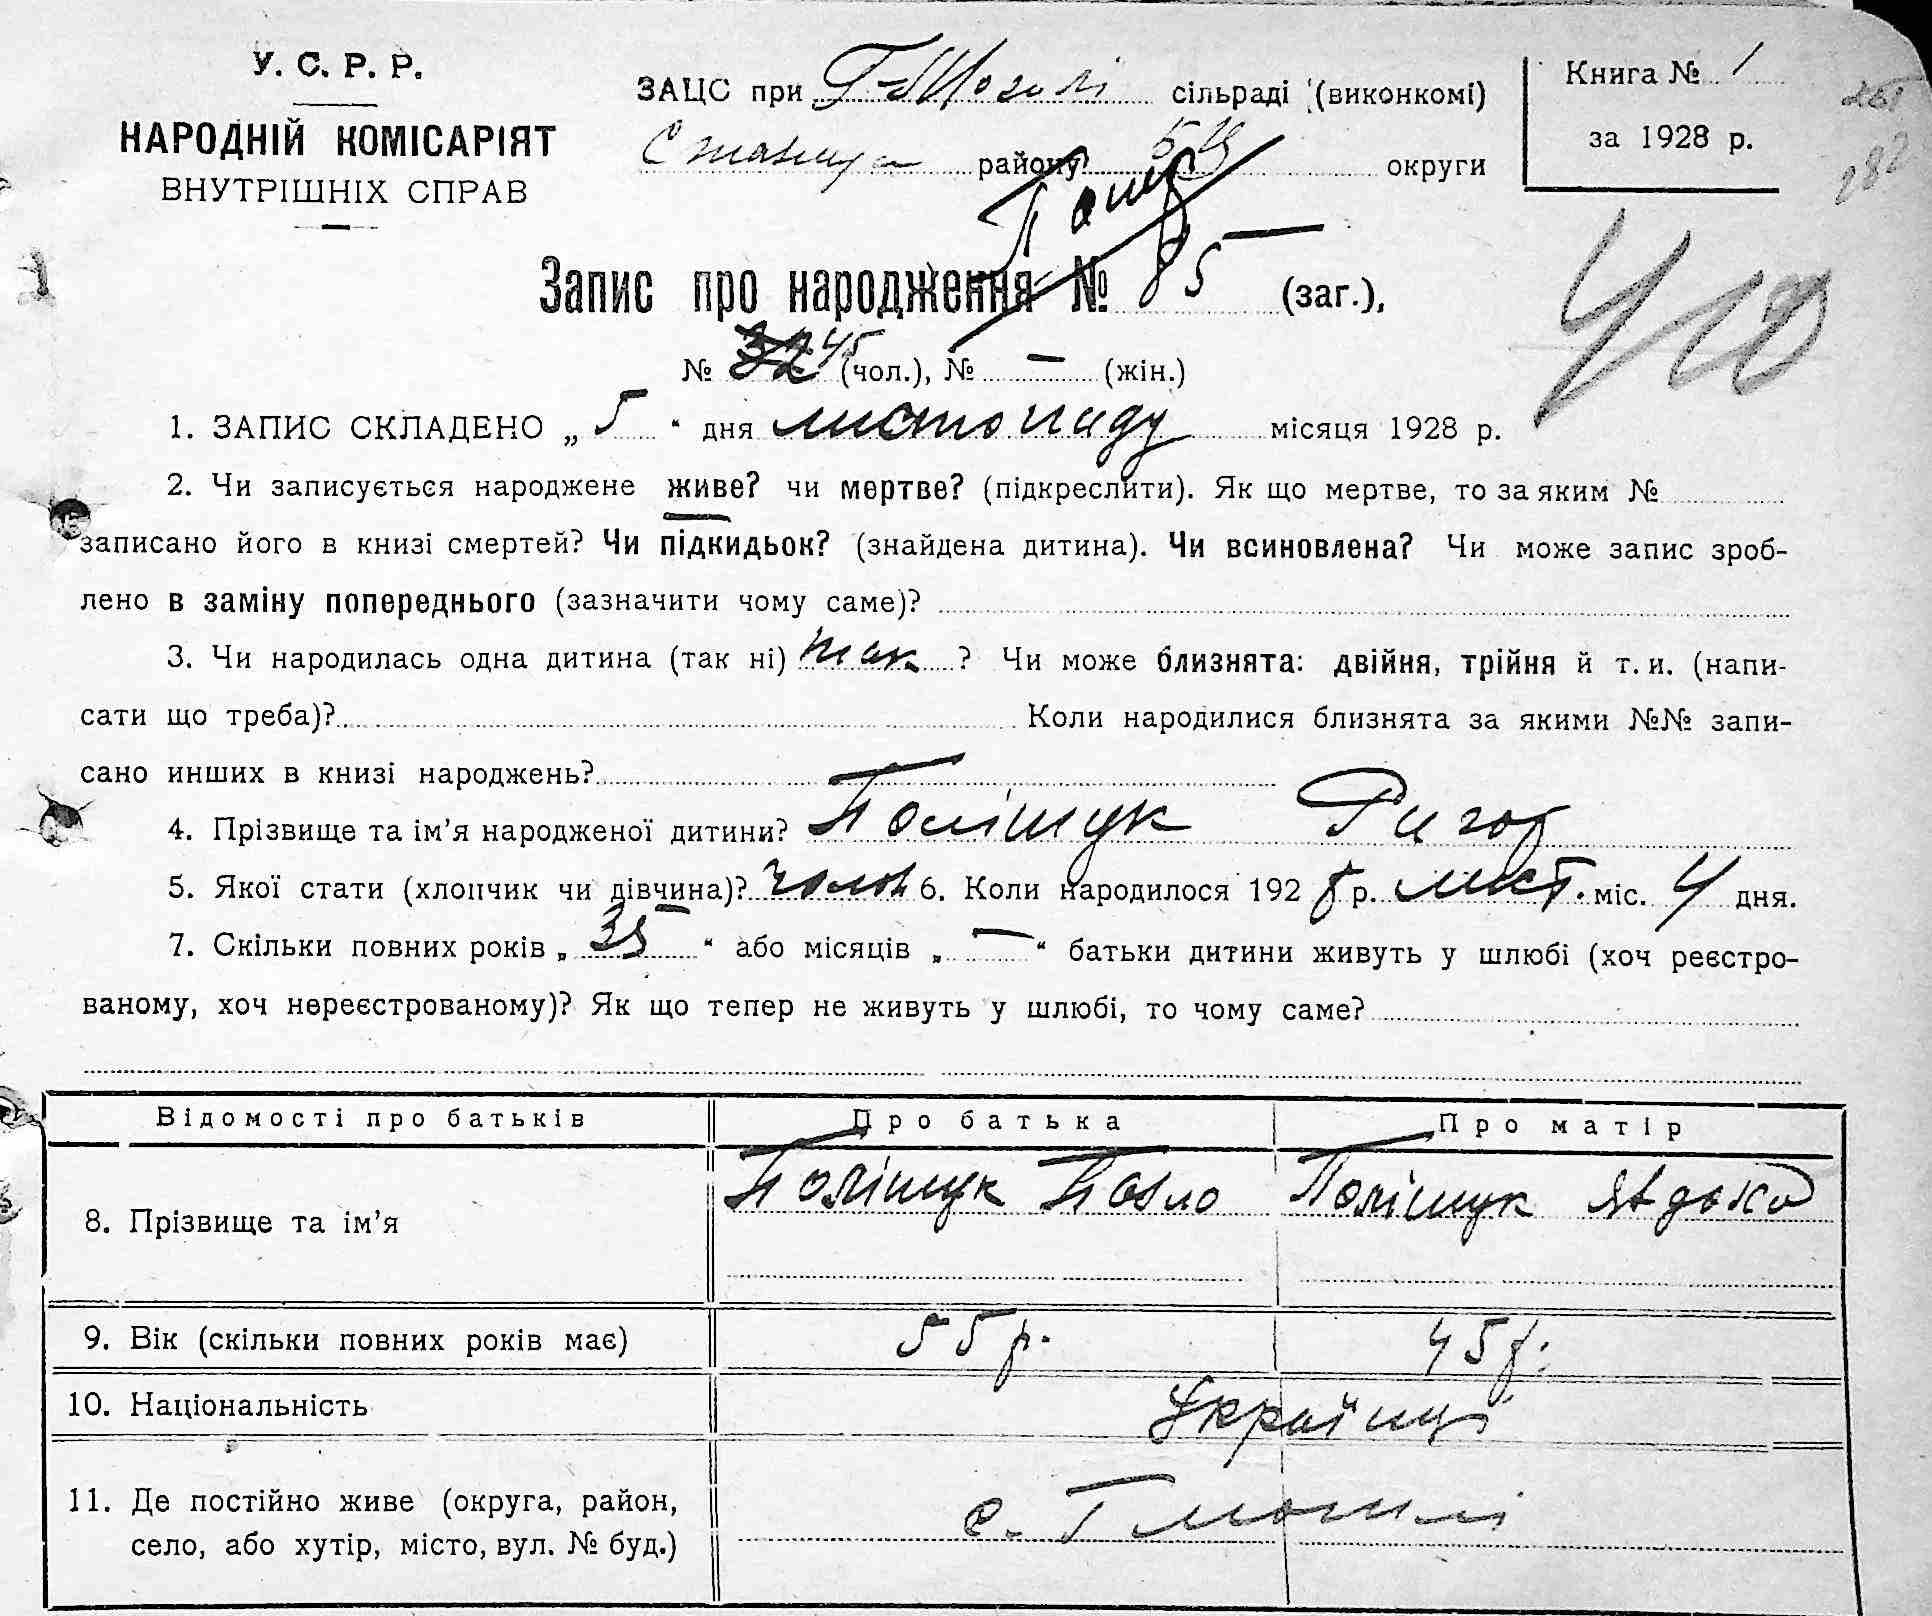 У. С. Р. Р.
НАРОДНІЙ КОМІСАРІЯТ
ВНУТРІШНІХ СПРАВ
ЗАЦС при сільраді (виконкомі)
району БЦ округи
Книга № 1
за 1928 р.
182
Запис про народження № 85 (заг.),
№ 32 45 (чол.), № — (жін.)
1. ЗАПИС СКЛАДЕНО „ 5 “ дня листопаду місяця 1928 р.
2. Чи записується народжене живе? чи мертве? (підкреслити). Як що мертве, то за яким №
записано його в книзі смертей? Чи підкидьок? (знайдена дитина). Чи всиновлена? Чи може запис зроб-
лено в заміну попереднього (зазначити чому саме)?
3. Чи народилась одна дитина (так ні) так ? Чи може близнята: двійня, трійня й т. и. (напи-
сати що треба)? Коли народилися близнята за якими №№ запи-
сано инших в книзі народжень?
4. Прізвище та ім’я народженої дитини? Поліщук Ригор
5. Якої стати (хлопчик чи дівчина)? чолов 6. Коли народилося 192 8 р. лист. міс. 4 дня.
7. Скільки повних років „ 35 “ або місяців „ — “ батьки дитини живуть у шлюбі (хоч реєстро-
ваному, хоч нереєстрованому)? Як що тепер не живуть у шлюбі, то чому саме?
Відомості про батьків Про батька Про матір
8. Прізвище та ім’я Поліщук Павло Поліщук Явдоха
9. Вік (скільки повних років має) 55 р. 45 р.
10. Національність Українці
11. Де постійно живе (округа, район,
село, або хутір, місто, вул. № буд.) с.